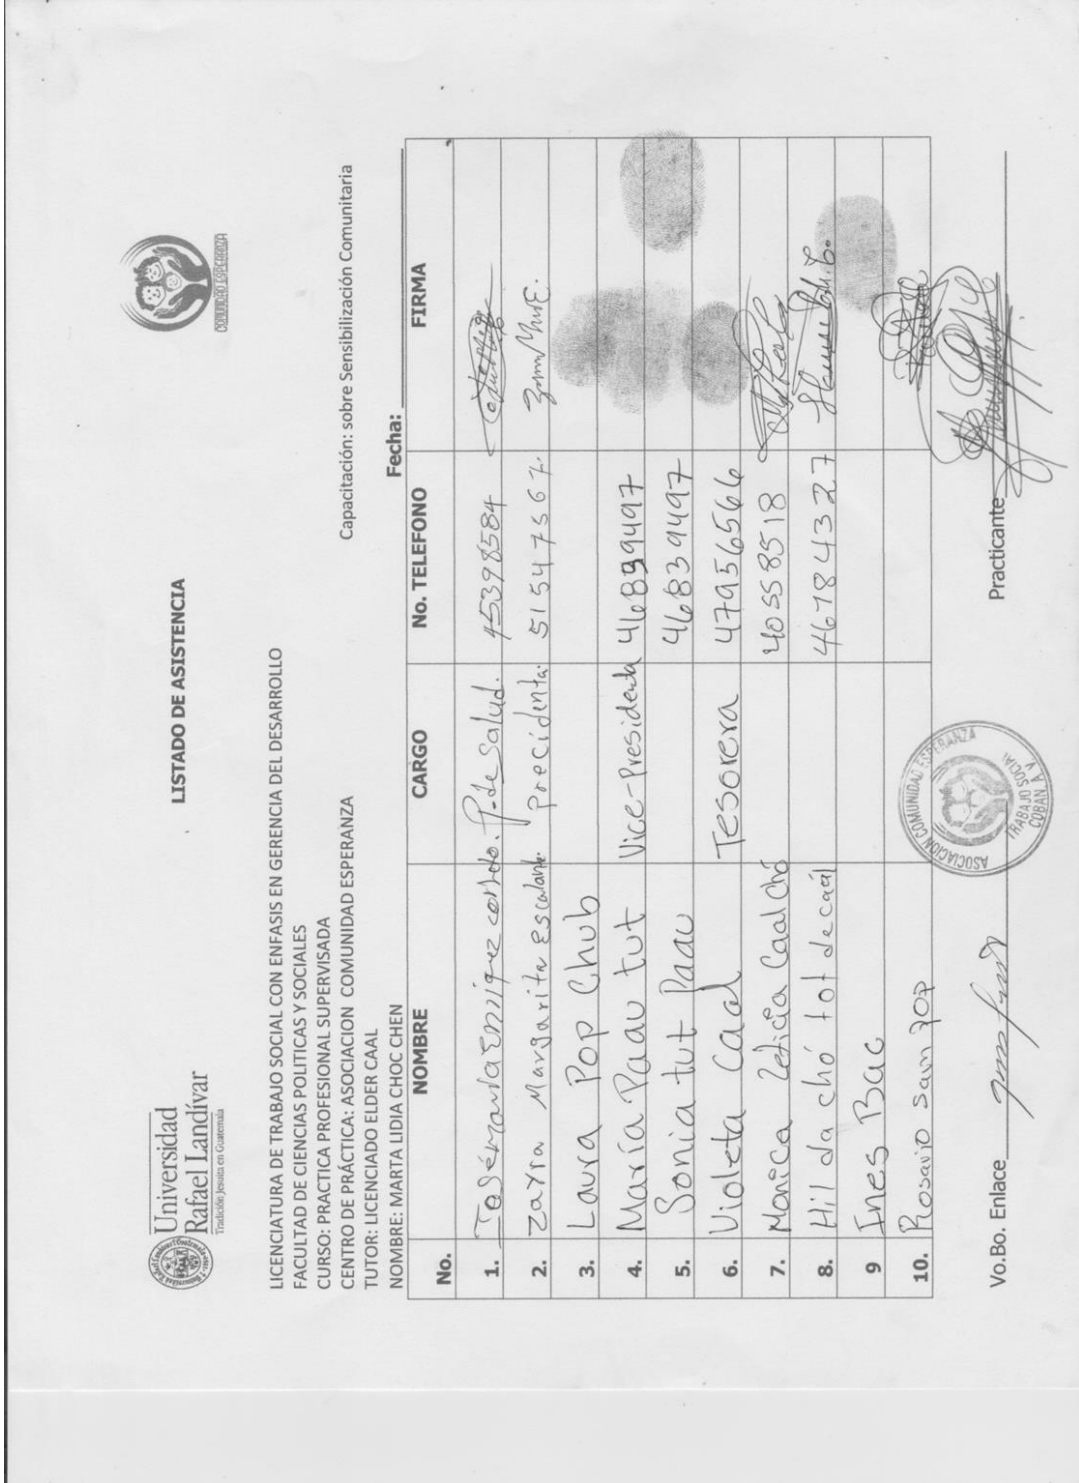 Universidad
Rafael Landívar
Tradición Jesuita en Guatemala
COMUNIDAD ESPERANZA
LISTADO DE ASISTENCIA
LICENCIATURA DE TRABAJO SOCIAL CON ENFASIS EN GERENCIA DEL DESARROLLO
FACULTAD DE CIENCIAS POLITICAS Y SOCIALES
CURSO: PRACTICA PROFESIONAL SUPERVISADA
CENTRO DE PRÁCTICA: ASOCIACION COMUNIDAD ESPERANZA
Capacitación: sobre Sensibilización Comunitaria
TUTOR: LICENCIADO ELDER CAAL
NOMBRE: MARTA LIDIA CHOC CHEN
Fecha:
No. NOMBRE CARGO No. TELEFONO FIRMA
1. José maría Enriquez P. de Salud. 45398584
2. zayra Margarita Escalante. precidenta. 51547567.
3. Laura Pop Chub
4. María Paau tut Vice-Presidenta 46839497
5. Sonia tut Paau 46839497
6. Violeta Caal Tesorera 47956566
7. Monica Leticia Caal Chó 40558518
8. Hilda chó tot de caal 46784327
9 Ines Bac
10. Rosario sam pop
Vo.Bo. Enlace
ASOCIACION COMUNIDAD ESPERANZA
TRABAJO SOCIAL
COBAN A.V.
Practicante